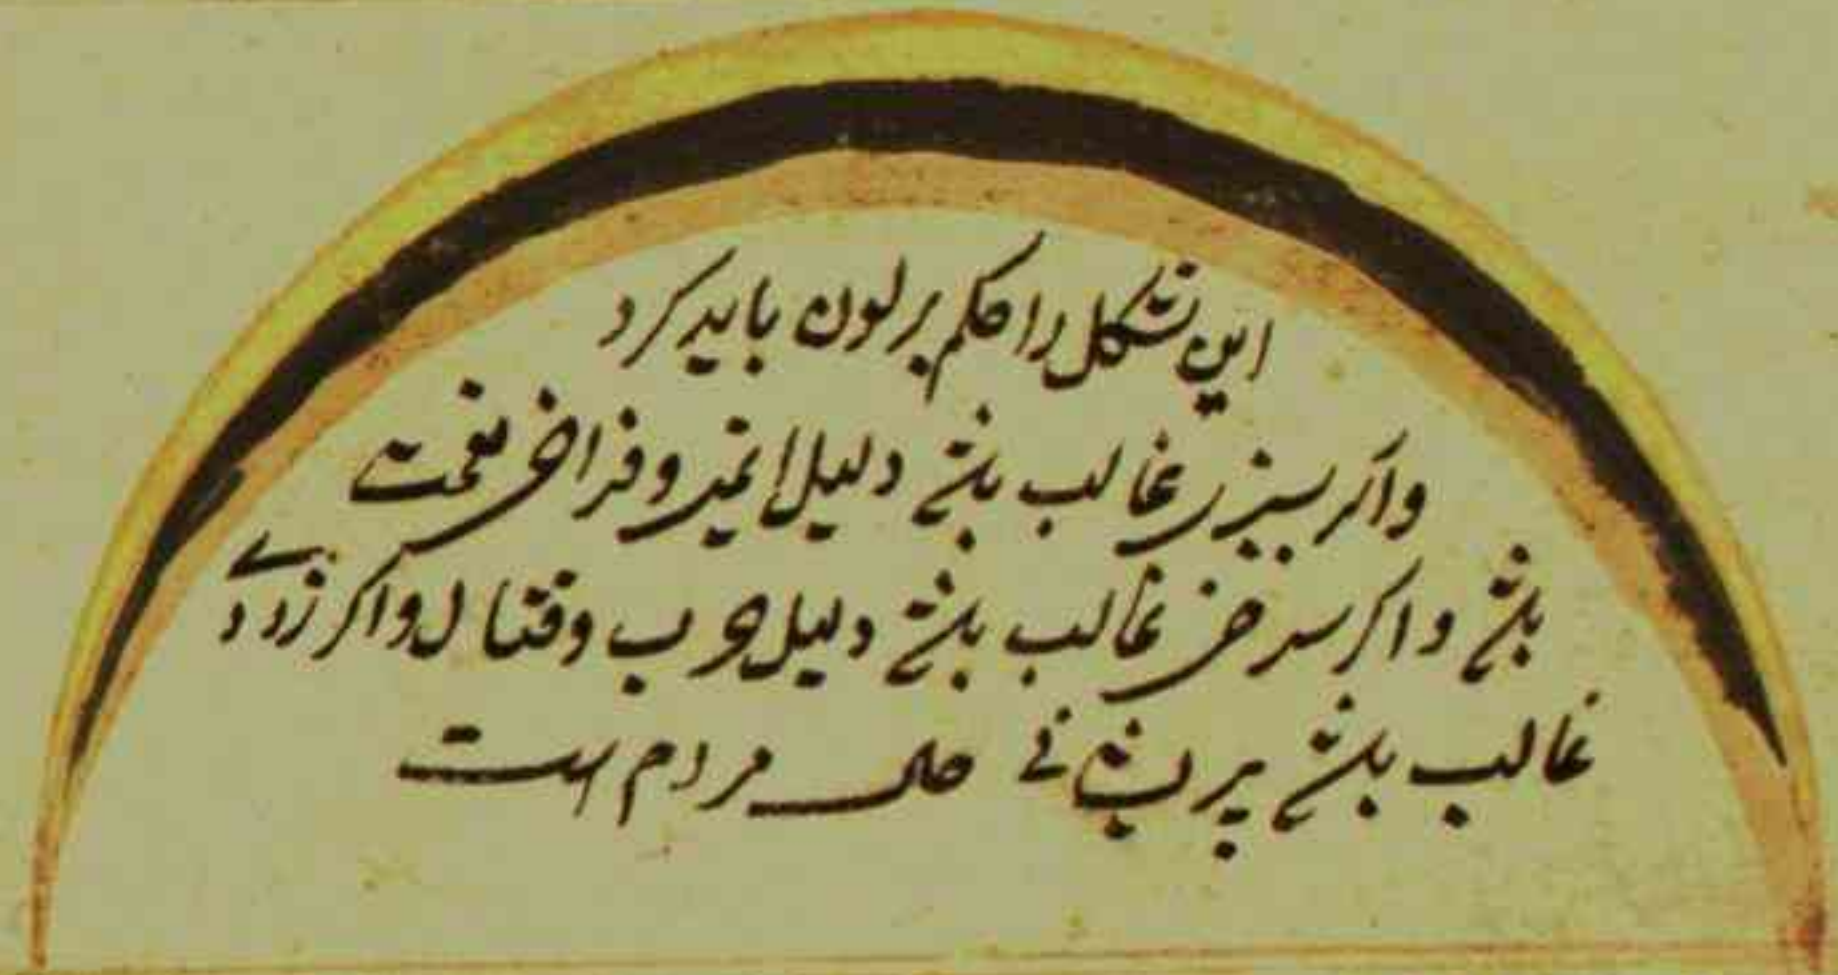 این شکل را حکم بر لون باید کرد
واکر سبزی غالب باشد دلیل ایمنی و فراخی نعمت
باشد واکر سرخی غالب باشد دلیل حرب و قتال واکر زردی
غالب باشد پریشانی حال مردم است